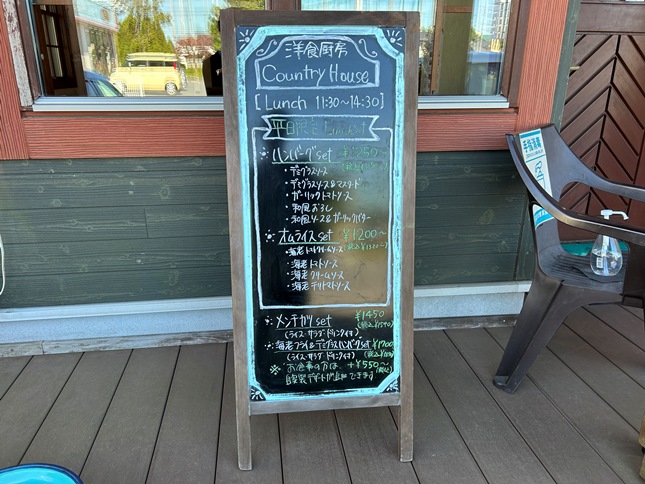 洋食厨房
Country House
[Lunch 11:30～14:30]
平日限定 Lunch
ハンバーグset ¥1250～
・デミグラスソース
・デミグラスソース&マスタード
・ガーリックトマトソース
・和風おろし
・和風ソース&ガーリックバター
オムライスset ¥1200～
(税込¥1320～)
・海老トマトクリームソース
・海老トマトソース
・海老クリームソース
・海老チリトマトソース
メンチカツset ¥1450
(ライス・サラダ・ドリンク付き)
海老フライ&デミグラスハンバーグset ¥1700
(ライス・サラダ・ドリンク付き)
※お食事の方は +¥550～
自家製デザートが追加できます
手指消毒